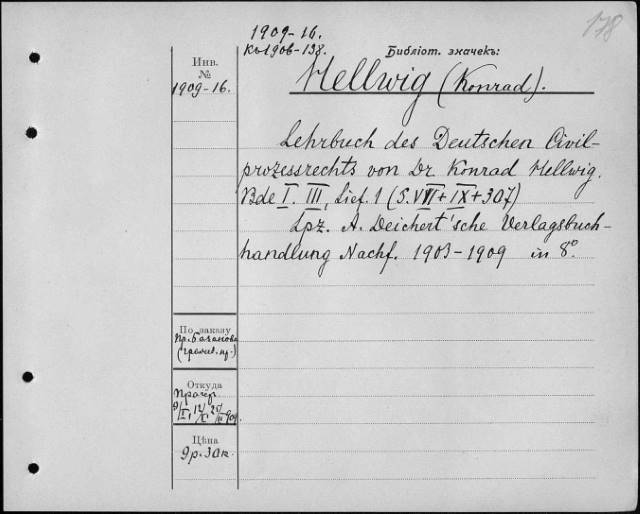 178
1909-16.
къ 1906-138.
Библіот. значекъ:
Инв.
№
1909-16.
Hellwig (Konrad).
Lehrbuch des Deutschen Civil-
prozessrechts von Dr. Konrad Hellwig.
Bde I. III, Lief. 1 (S. VII + IX + 307)
Lpz. A. Deichert'sche Verlagsbuch-
handlung Nachf. 1903-1909 in 8°
По заказу
Пр.
Откуда
909.
Цѣна
9 р. 30 к.